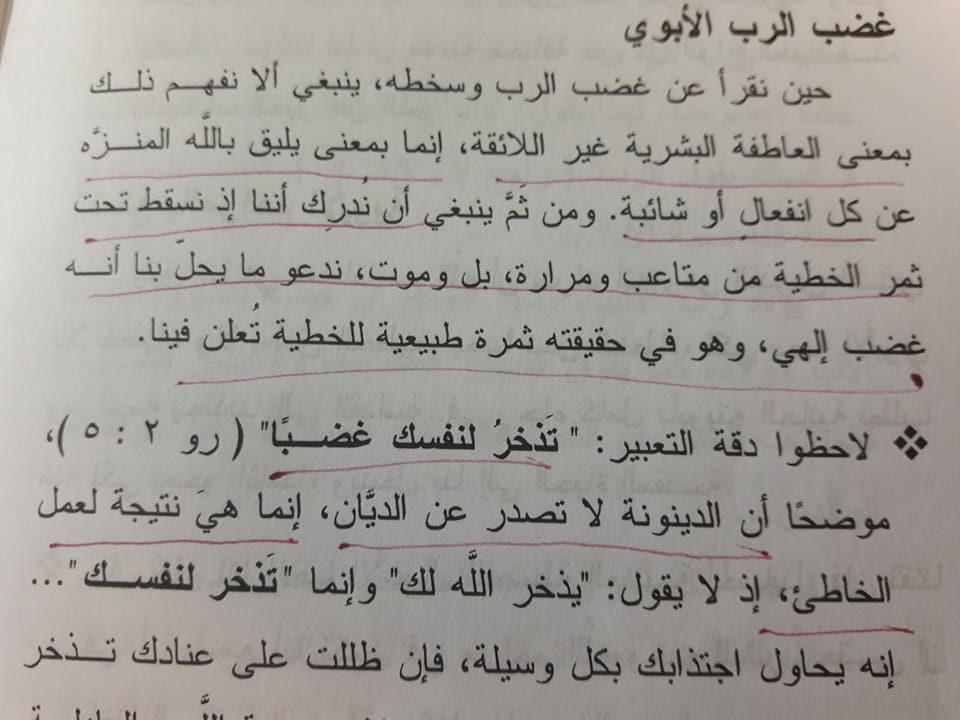 غضب الرب الأبوي
حين نقرأ عن غضب الرب وسخطه، ينبغي ألا نفهم ذلك
بمعنى العاطفة البشرية غير اللائقة، إنما بمعنى يليق باللَّه المنزَّه
عن كل انفعال أو شائبة. ومن ثَمَّ ينبغي أن نُدرِك أننا إذ نسقط تحت
ثمر الخطية من متاعب ومرارة، بل وموت، ندعو ما يحلّ بنا أنه
غضب إلهي، وهو في حقيقته ثمرة طبيعية للخطية تُعلن فينا.
❖ لاحظوا دقة التعبير: "تَذخرُ لنفسك غضبًا" (رو ٢ : ٥)،
موضحًا أن الدينونة لا تصدر عن الديَّان، إنما هيَ نتيجة لعمل
الخاطئ، إذ لا يقول: "يذخر اللَّه لك" وإنما "تَذخر لنفسك"...
إنه يحاول اجتذابك بكل وسيلة، فإن ظللت على عنادك تذخر